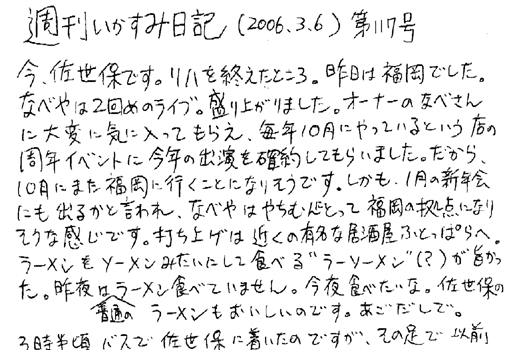 週刊いかすみ日記 (2006.3.6) 第117号
今、佐世保です。リハを終えたところ。昨日は福岡でした。
なべやは2回めのライブ。盛り上がりました。オーナーのなべさん
に大変に気に入ってもらえ、毎年10月にやっているという店の
周年イベントに今年の出演を確約してもらいました。だから、
10月にまた福岡に行くことになりそうです。しかも、1月の新年会
にも出るかと言われ、なべやはやちむんにとって福岡の拠点になり
そうな感じです。打ち上げは近くの有名な居酒屋ふとっぱらへ。
ラーメンをソーメンみたいにして食べる"ラーソーメン"(?)が旨かっ
た。昨夜はラーメン食べていません。今夜食べたいな。佐世保の
普通のラーメンもおいしいのです。あごだしで。
3時半頃バスで佐世保に着いたのですが、その足で以前